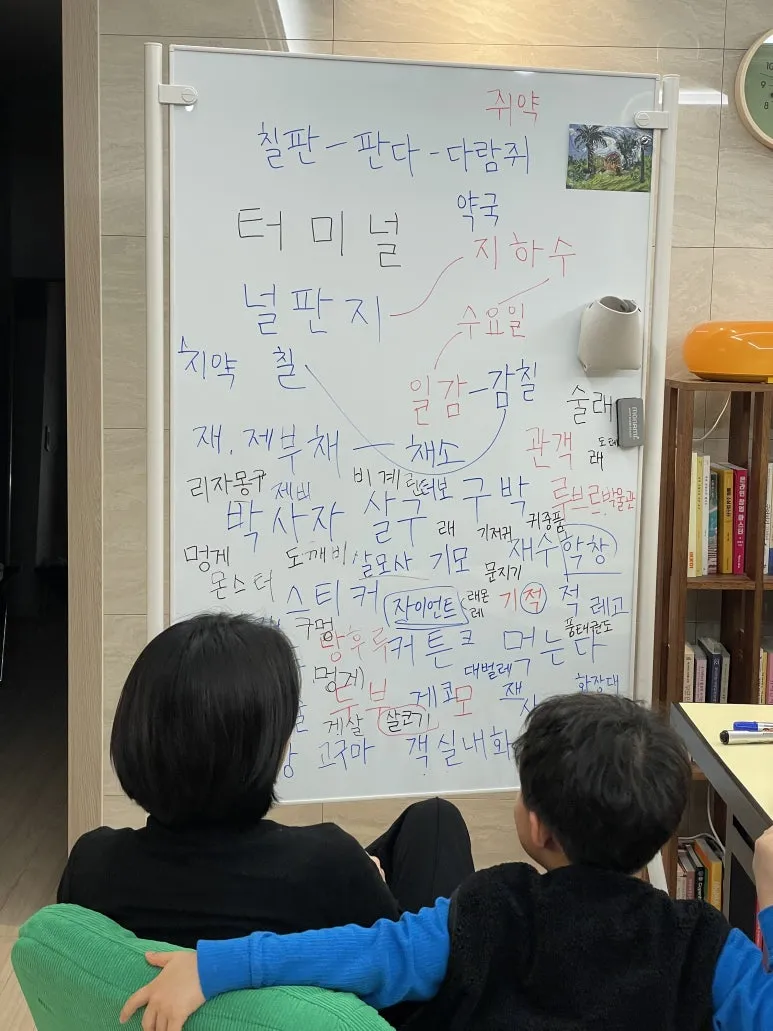 쥐약
칠판 - 판다 - 다람쥐
약국
터미널
지하수
널판지
수요일
치약 칠
일감 - 감칠
술래
재. 제부채 - 채소
관객
리자몽 제비 비계
박사자 살구 구박
루브르박물관
래 기저귀 귀중품
멍게 도깨비 살모사 기모 재수학창
몬스터 문지기
스티커 자이언트 기적 적 레고
구멍 망후루 커튼 크 먹는다
풍태권도
대벌레
멍게) 두부 게코모
화장대
게살 살코기
고구마 객실내화